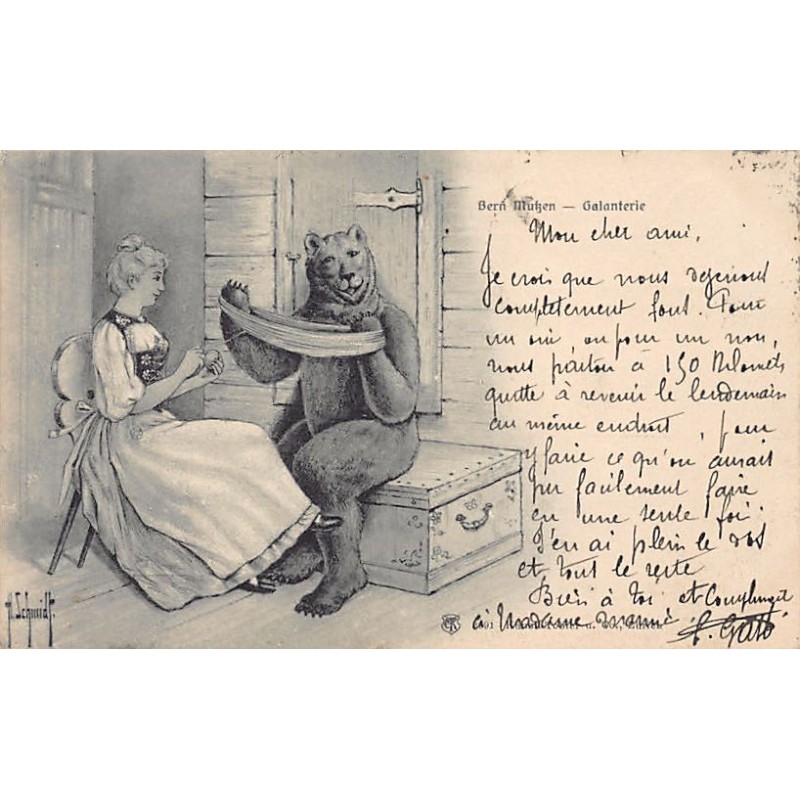 Bern Mutzen — Galanterie
Mon cher ami,
Je crois que nous devenons
completement fous. Pour
un oui, ou pour un non,
nous parton à 150 Kilomets
quitte à revenir le lendemain
au même endroit, pour
y faire ce qu'on aurait
pu facilement faire
en une seule foi.
J'en ai plein le dos
et tout le reste
Bien à toi et
à Madame
H. Schmidt.